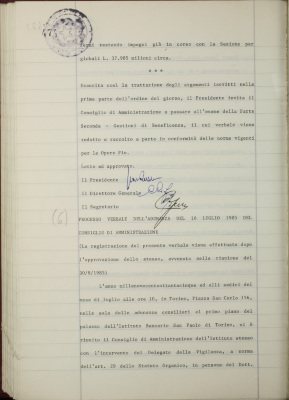 tuni tenendo impegni già in corso con la Sezione per
globali L. 37.985 milioni circa.
* * *
Esaurita così la trattazione degli argomenti iscritti nella
prima parte dell'ordine del giorno, il Presidente invita il
Consiglio di Amministrazione a passare all'esame della Parte
Seconda - Gestioni di Beneficenza, il cui verbale viene
redatto e raccolto a parte in conformità delle norme vigenti
per le Opere Pie.
Letto ed approvato.
Il Presidente
Il Direttore Generale
Il Segretario
(6)
PROCESSO VERBALE DELL'ADUNANZA DEL 16 LUGLIO 1985 DEL
CONSIGLIO DI AMMINISTRAZIONE
(La registrazione del presente verbale viene effettuata dopo
l'approvazione dello stesso, avvenuta nella riunione del
30/8/1985)
L'anno millenovecentottantacinque ed alli sedici del
mese di luglio alle ore 10, in Torino, Piazza San Carlo 156,
nella sala delle adunanze consiliari al primo piano del
palazzo dell'Istituto Bancario San Paolo di Torino, si è
riunito il Consiglio di Amministrazione dell'Istituto stesso
con l'intervento del Delegato della Vigilanza, a norma
dell'art. 28 dello Statuto Organico, in persona del Dott.